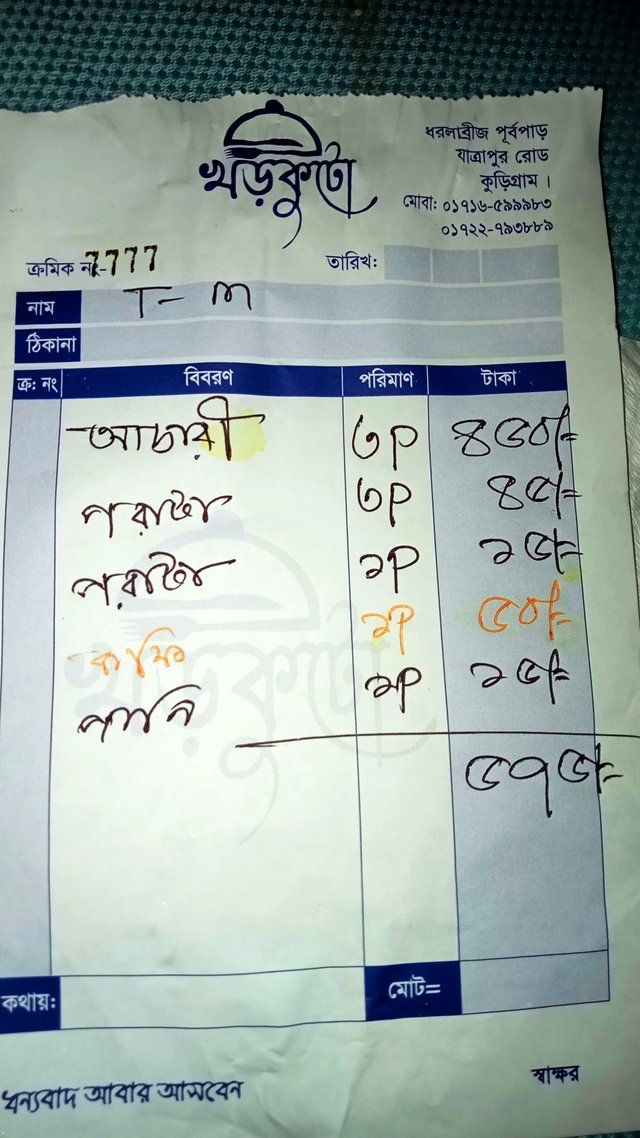 খড়কুটো
ধরলাব্রীজ পূর্বপাড়
যাত্রাপুর রোড
কুড়িগ্রাম।
মোবা: ০১৭১৬-৫৯৯৯৮৩
০১৭২২-৭৯৩৮৮৯
ক্রমিক নং- 7777 তারিখ:
নাম T- m
ঠিকানা
ক্র: নং বিবরণ পরিমাণ টাকা
আচারী ৩P ৪৫০/=
পরাটা ৩P ৪৫/=
পরাটা ১P ১৫/=
কফি ১P ৫০/=
পানি ১P ১৫/=
৫৭৫/=
কথায়: মোট=
ধন্যবাদ আবার আসবেন স্বাক্ষর